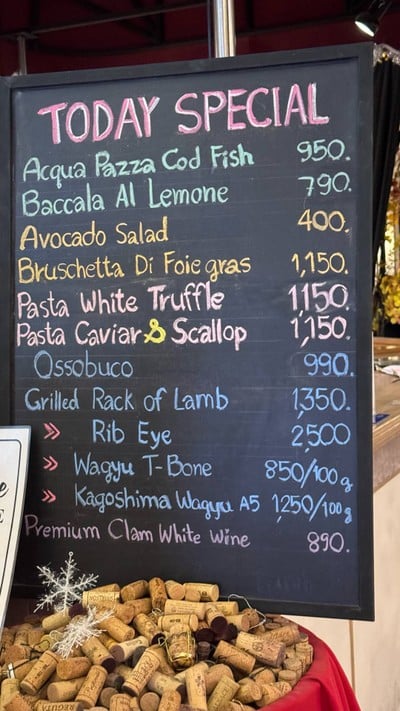 TODAY SPECIAL
Acqua Pazza Cod Fish 950.
Baccala Al Lemone 790.
Avocado Salad 400.
Bruschetta Di Foie gras 1,150.
Pasta White Truffle 1,150.
Pasta Caviar & Scallop 1,150.
Ossobuco 990.
Grilled Rack of Lamb 1,350.
» Rib Eye 2,500
» Wagyu T-Bone 850/100g
» Kagoshima Wagyu A5 1,250/100g
Premium Clam White Wine 890.